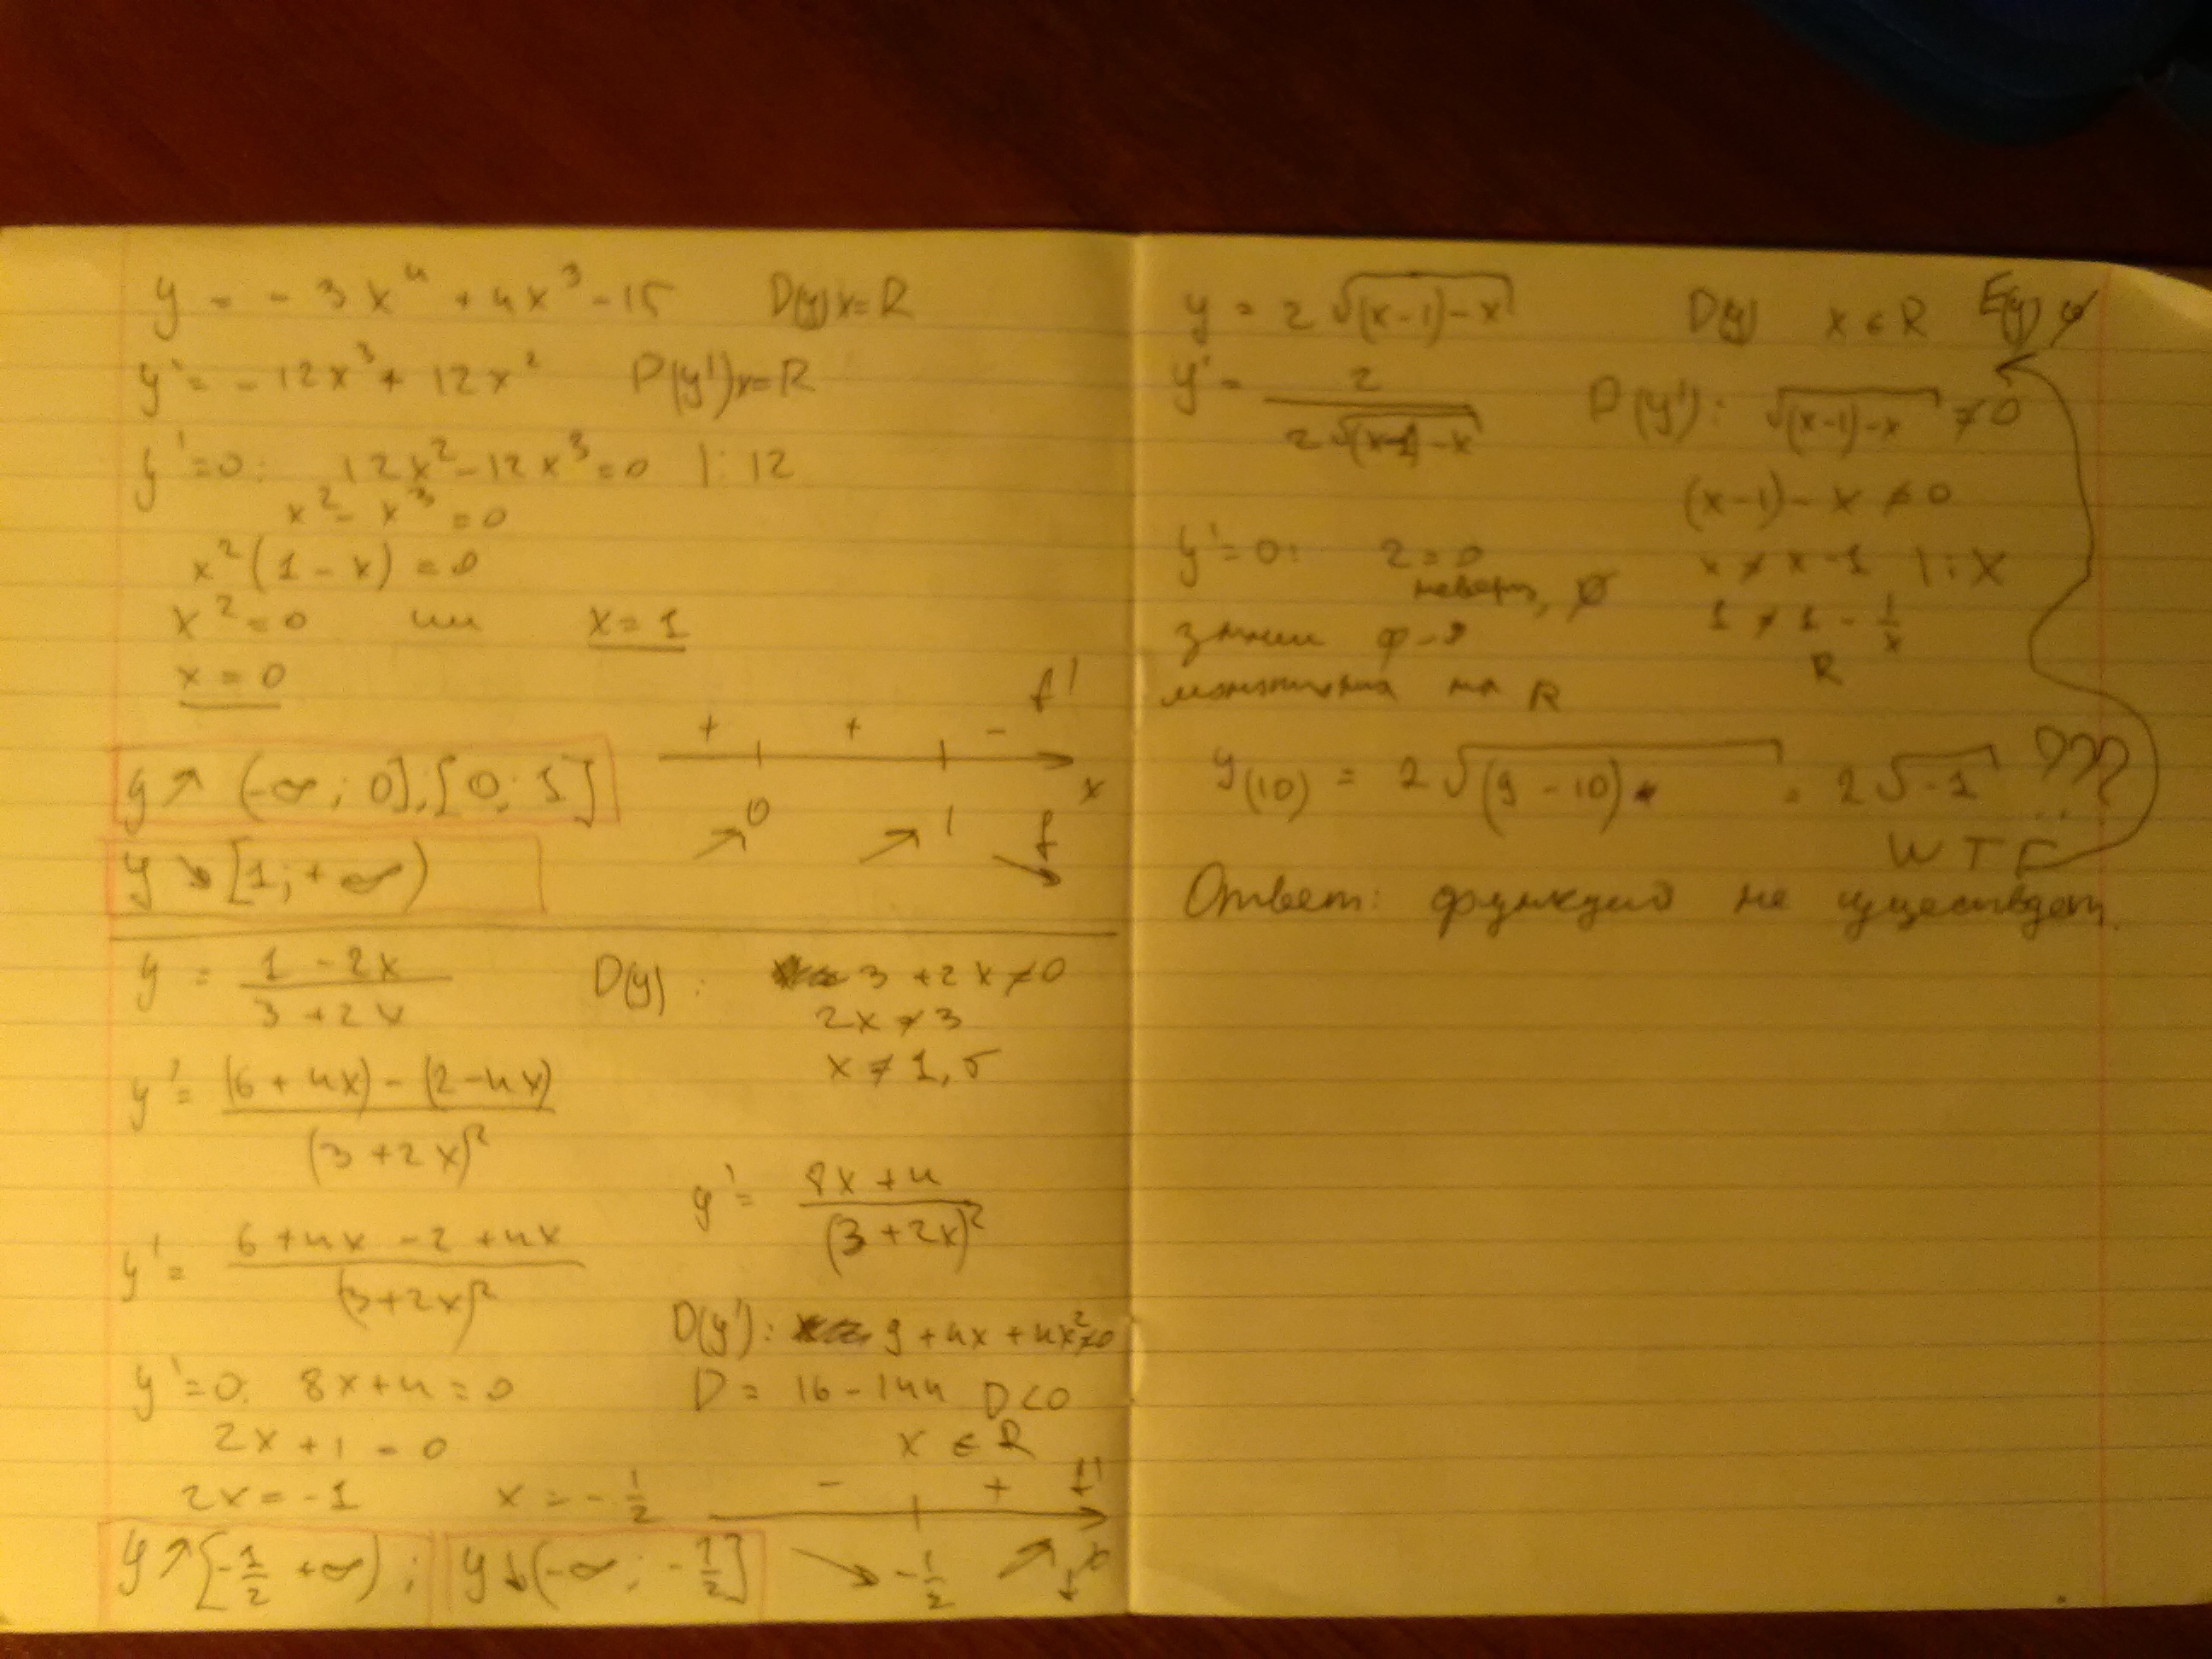 y = -3x⁴ + 4x³ - 15 D(y) x=R
y' = -12x³ + 12x² D(y') x=R
y'=0: 12x² - 12x³ = 0 |: 12
x² - x³ = 0
x²(1 - x) = 0
x² = 0 или x = 1
x = 0
+ + - f'
0 1 x
y ↗ (-∞; 0], [0; 1]
↗ ↗ ↘ f
y ↘ [1; +∞)
y = (1 - 2x)/(3 + 2x) D(y): 3 + 2x ≠ 0
2x ≠ 3
x ≠ 1,5
y' = ((6 + 4x) - (2 - 4x))/(3 + 2x)²
y' = (8x + 4)/(3 + 2x)²
y' = (6 + 4x - 2 + 4x)/(3 + 2x)²
D(y'): 9 + 4x + 4x² ≠ 0
y' = 0: 8x + 4 = 0 D = 16 - 144 D < 0
2x + 1 = 0 x ∈ R
2x = -1 x = -1/2
- + f'
-1/2 x
↘ ↗ f
y ↗ [-1/2 +∞); y ↓ (-∞; -1/2]
y = 2√((x-1)-x) D(y) x ∈ R E(y) ∅
y' = 2/(2√((x-1)-x)) D(y'): √((x-1)-x) ≠ 0
(x-1) - x ≠ 0
y' = 0: 2 = 0 x ≠ x - 1 |: x
неверно, ∅ 1 ≠ 1 - 1/x
значит ф-я R
монотонна на R
y(10) = 2√((9 - 10)) = 2√-1 ???
WTF
Ответ: функция не существует.